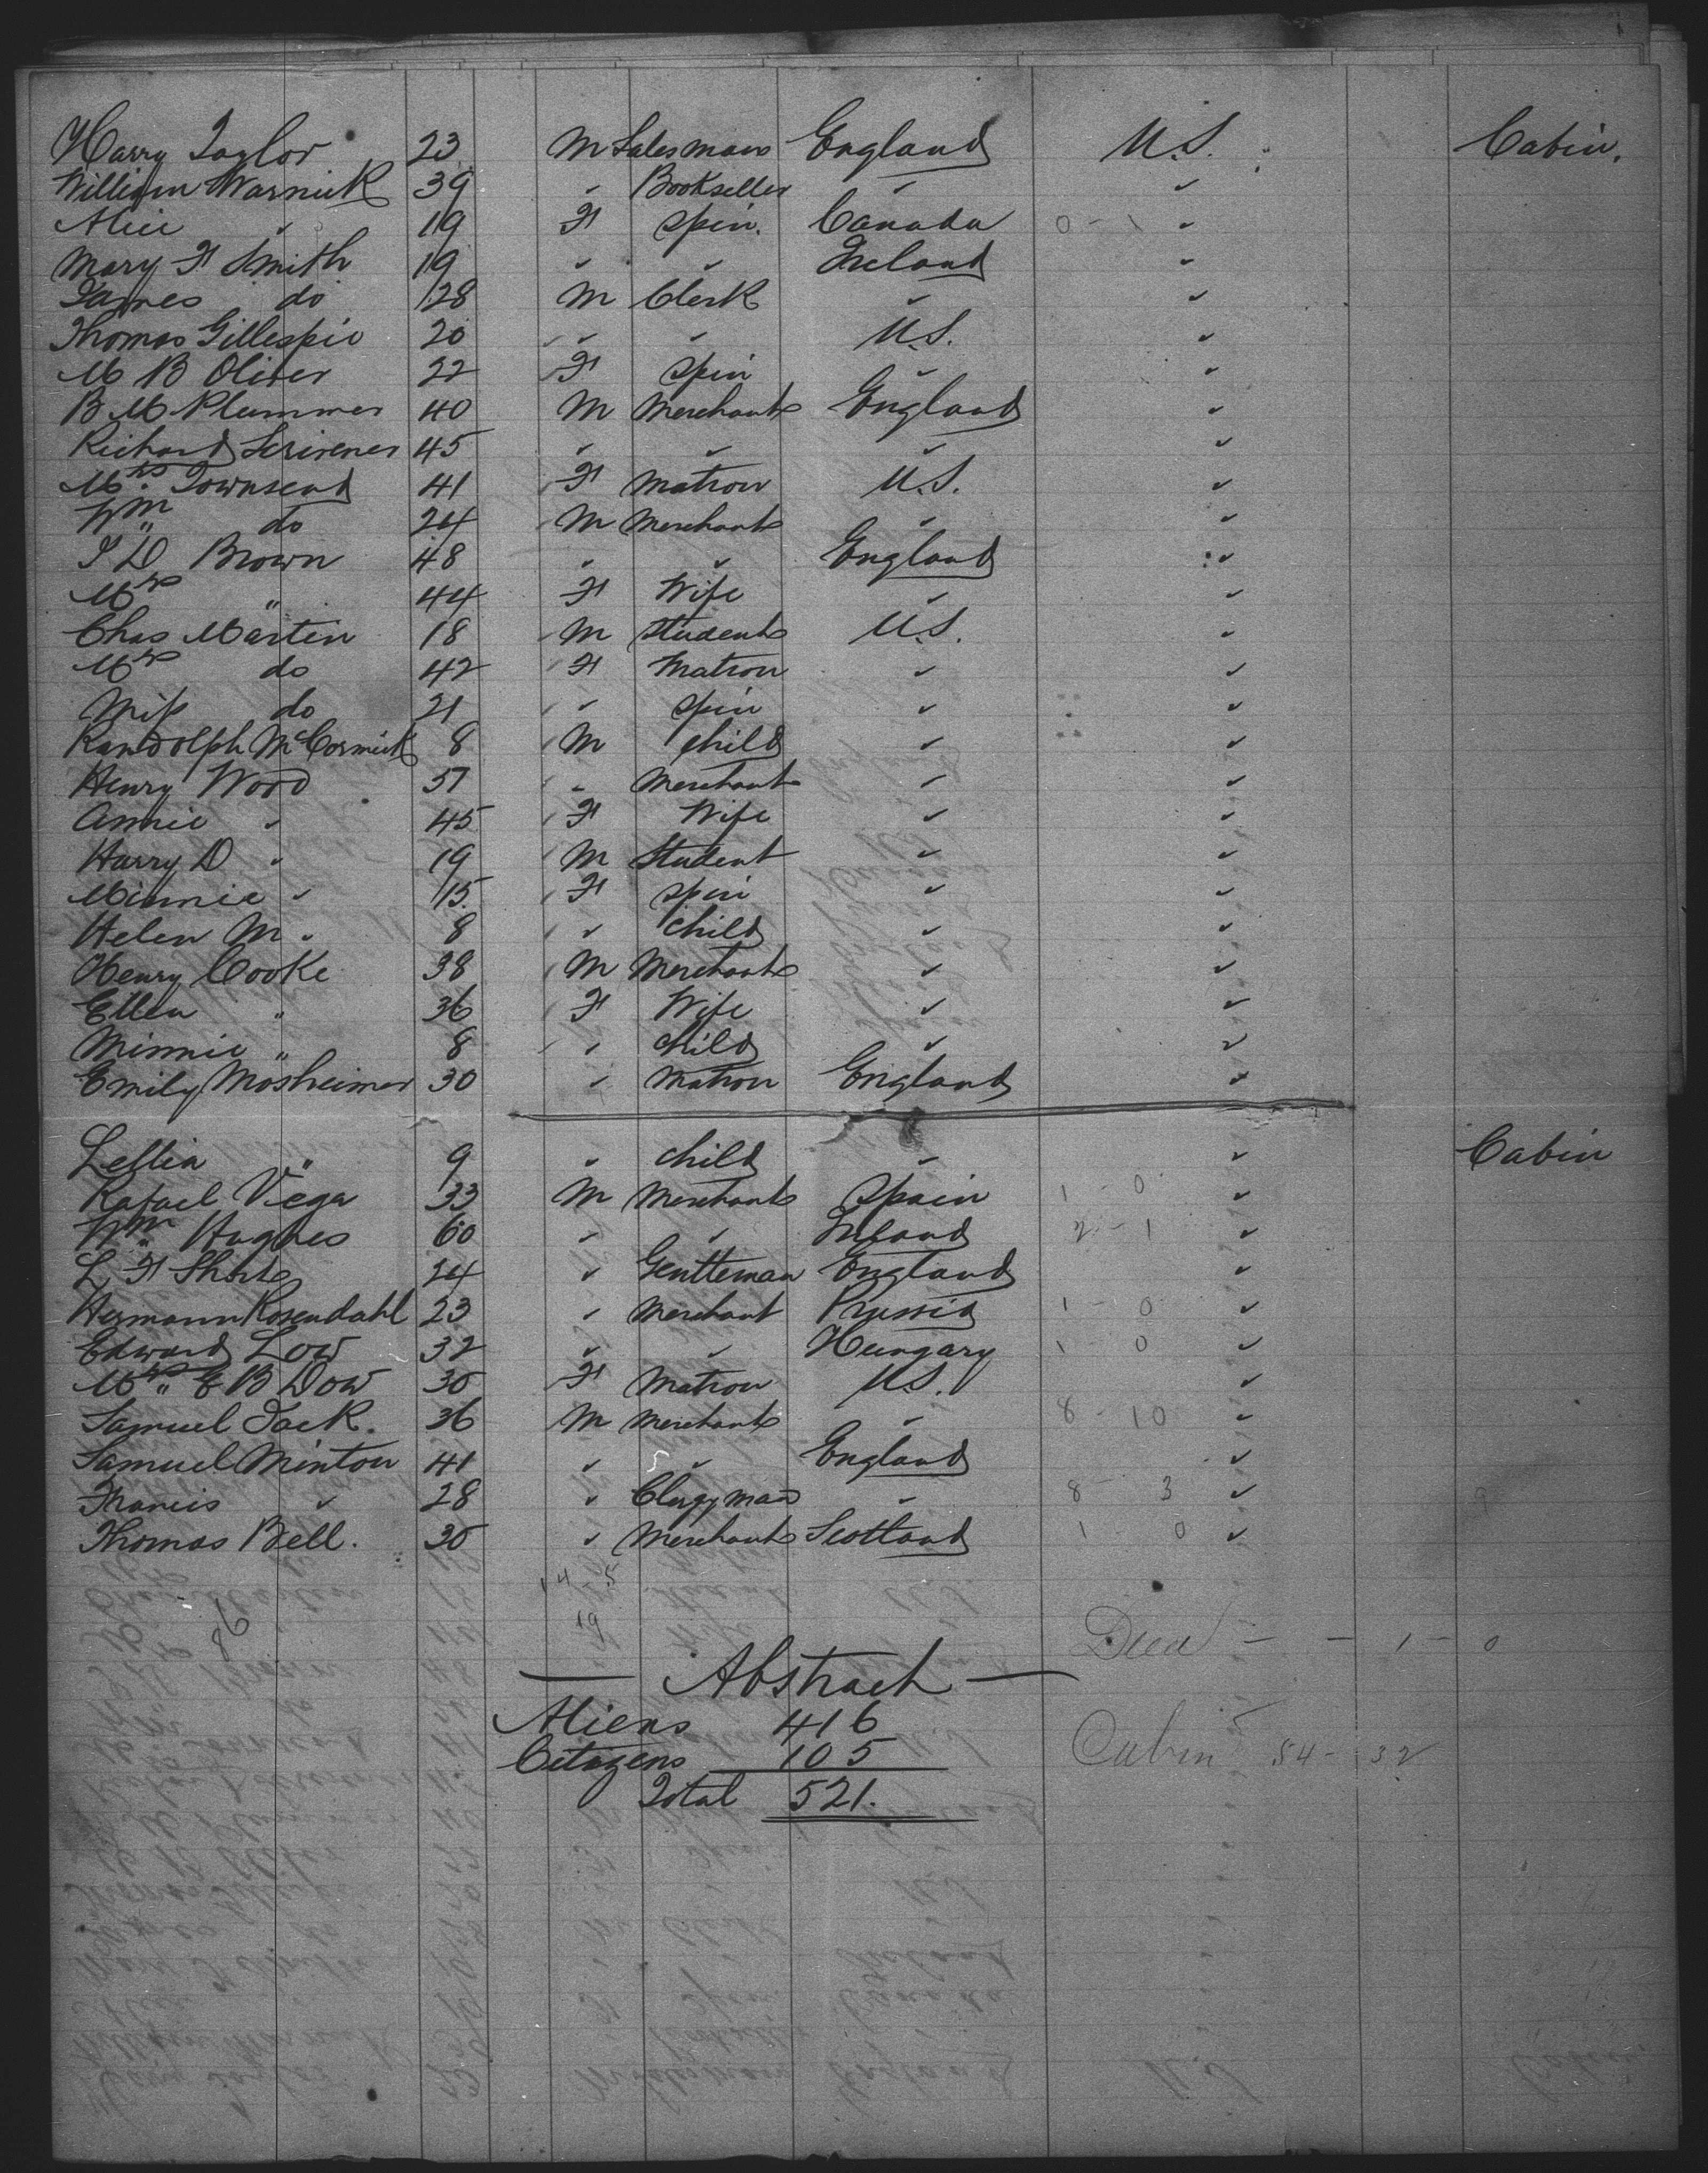 Harry Taylor 23 M Salesman England U.S. Cabin.
William Warnick 39 " Bookseller " "
Alice " 19 F Spin. Canada 0 - 1 "
Mary F Smith 19 " " Ireland "
James do 28 M Clerk " "
Thomas Gillespie 20 " " U.S. "
M B Oliver 22 F Spin " "
B M Plummer 40 M Merchant England "
Richard Scrivener 45 " " " "
Mrs. Townsend 41 F Matron U.S. "
Wm do 24 M Merchant " "
J D Brown 48 " " England "
Mrs " 44 F Wife " "
Chas Martin 18 M Student U.S. "
Mrs do 42 F Matron " "
Miss do 21 " Spin " "
Randolph McCormick 8 M Child " "
Henry Wood 57 " Merchant " "
Annie " 45 F Wife " "
Harry D " 19 M Student " "
Minnie " 15 F Spin " "
Helen M " 8 " Child " "
Henry Cooke 38 M Merchant " "
Ellen " 36 F Wife " "
Minnie " 8 " Child " "
Emily Mosheimer 30 " Matron England "
Lellia " 9 " Child " " Cabin
Rafael Viega 33 M Merchant Spain 1 - 0 "
Wm Hughes 60 " " Ireland 2 - 1 "
L F Short 24 " Gentleman England "
Hermann Rosendahl 23 " Merchant Prussia 1 - 0 "
Edward Low 32 " " Hungary 1 - 0 "
Mrs " E B Dow 30 F Matron U.S. "
Samuel Jack. 36 M Merchant " 8 - 10 "
Samuel Minton 41 " " England "
Francis " 28 " Clergyman " 8 3 "
Thomas Bell. 30 " Merchant Scotland 1 0 "
14 5
86 19 Died - - 1 - 0
— Abstract —
Aliens 416
Citizens 105 Cabin 54 - 32
Total 521.